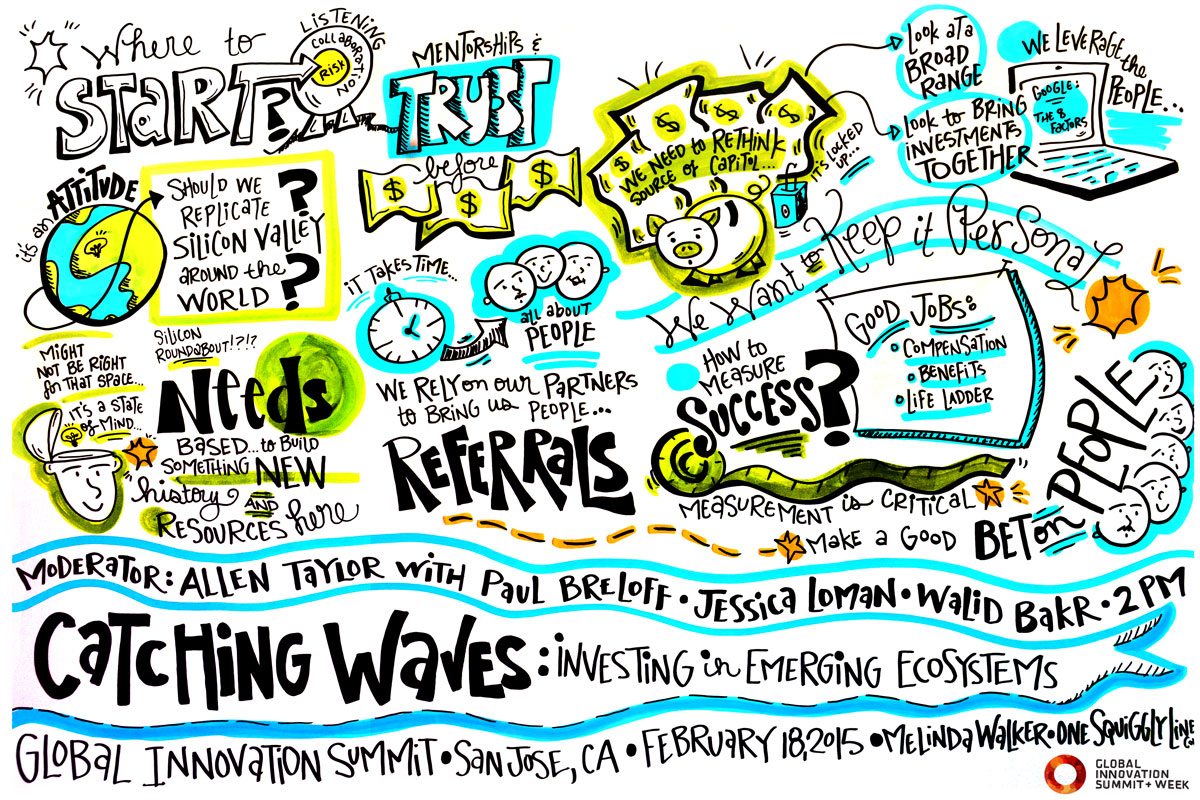 Where to
START?
LISTENING
COLLABORATION
RISK
MENTORSHIPS &
TRUST
before
$
$
$
it's an
ATTITUDE
SHOULD WE
REPLICATE
SILICON VALLEY
AROUND the
WORLD
??
MIGHT
NOT BE RIGHT
for THAT SPACE...
IT'S A STATE
of-MIND...
SILICON
ROUNDABOUT!?!?
NEEDS
BASED... to BUILD
SOMETHING NEW
history
AND
RESOURCES here
IT TAKES TIME...
all about
PEOPLE
WE RELY on our PARTNERS
to BRING us PEOPLE...
REFERRALS
$
$
$
$
WE NEED to RETHINK
SOURCE of CAPITOL...
IT'S LOCKED
UP...
Look at a
BROAD
RANGE
Look to BRING
INVESTMENTS
TOGETHER
WE LEVERAGE the
PEOPLE...
GOOGLE:
THE 8
FACTORS
We Want to Keep it Personal
GOOD JOBS:
COMPENSATION
BENEFITS
LIFE LADDER
HOW to
MEASURE
SUCCESS?
MEASUREMENT is CRITICAL
MAKE A GOOD
BET on PEOPLE
MODERATOR: ALLEN TAYLOR WITH PAUL BRELOFF • JESSICA LOMAN • WALID BAKR • 2 PM
CATCHING WAVES: INVESTING in EMERGING ECOSYSTEMS
GLOBAL INNOVATION SUMMIT • SAN JOSE, CA • FEBRUARY 18, 2015 • MELINDA WALKER • ONE SQUIGGLY LINE
GLOBAL
INNOVATION
SUMMIT + WEEK